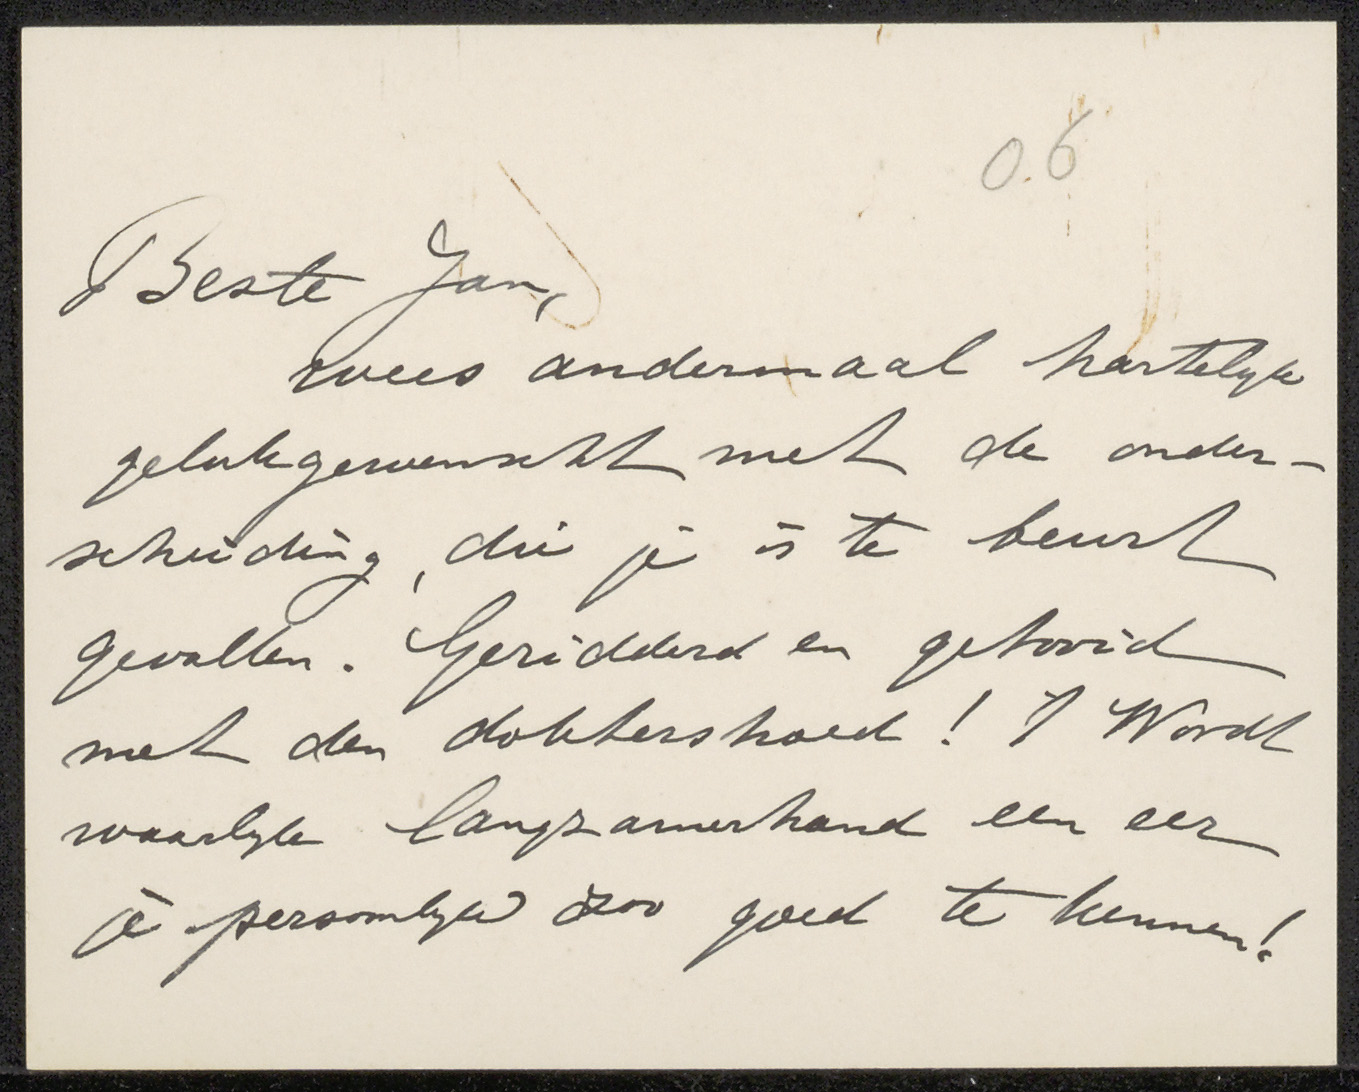 06
Beste Jan,
wees andermaal hartelijk
gelukgewenscht met de onder-
scheiding, die je is te beurt
gevallen. Geridderd en getooid
met den doktershoed! 't Wordt
waarlijk langzamerhand een eer
je persoonlijk zoo goed te kennen!